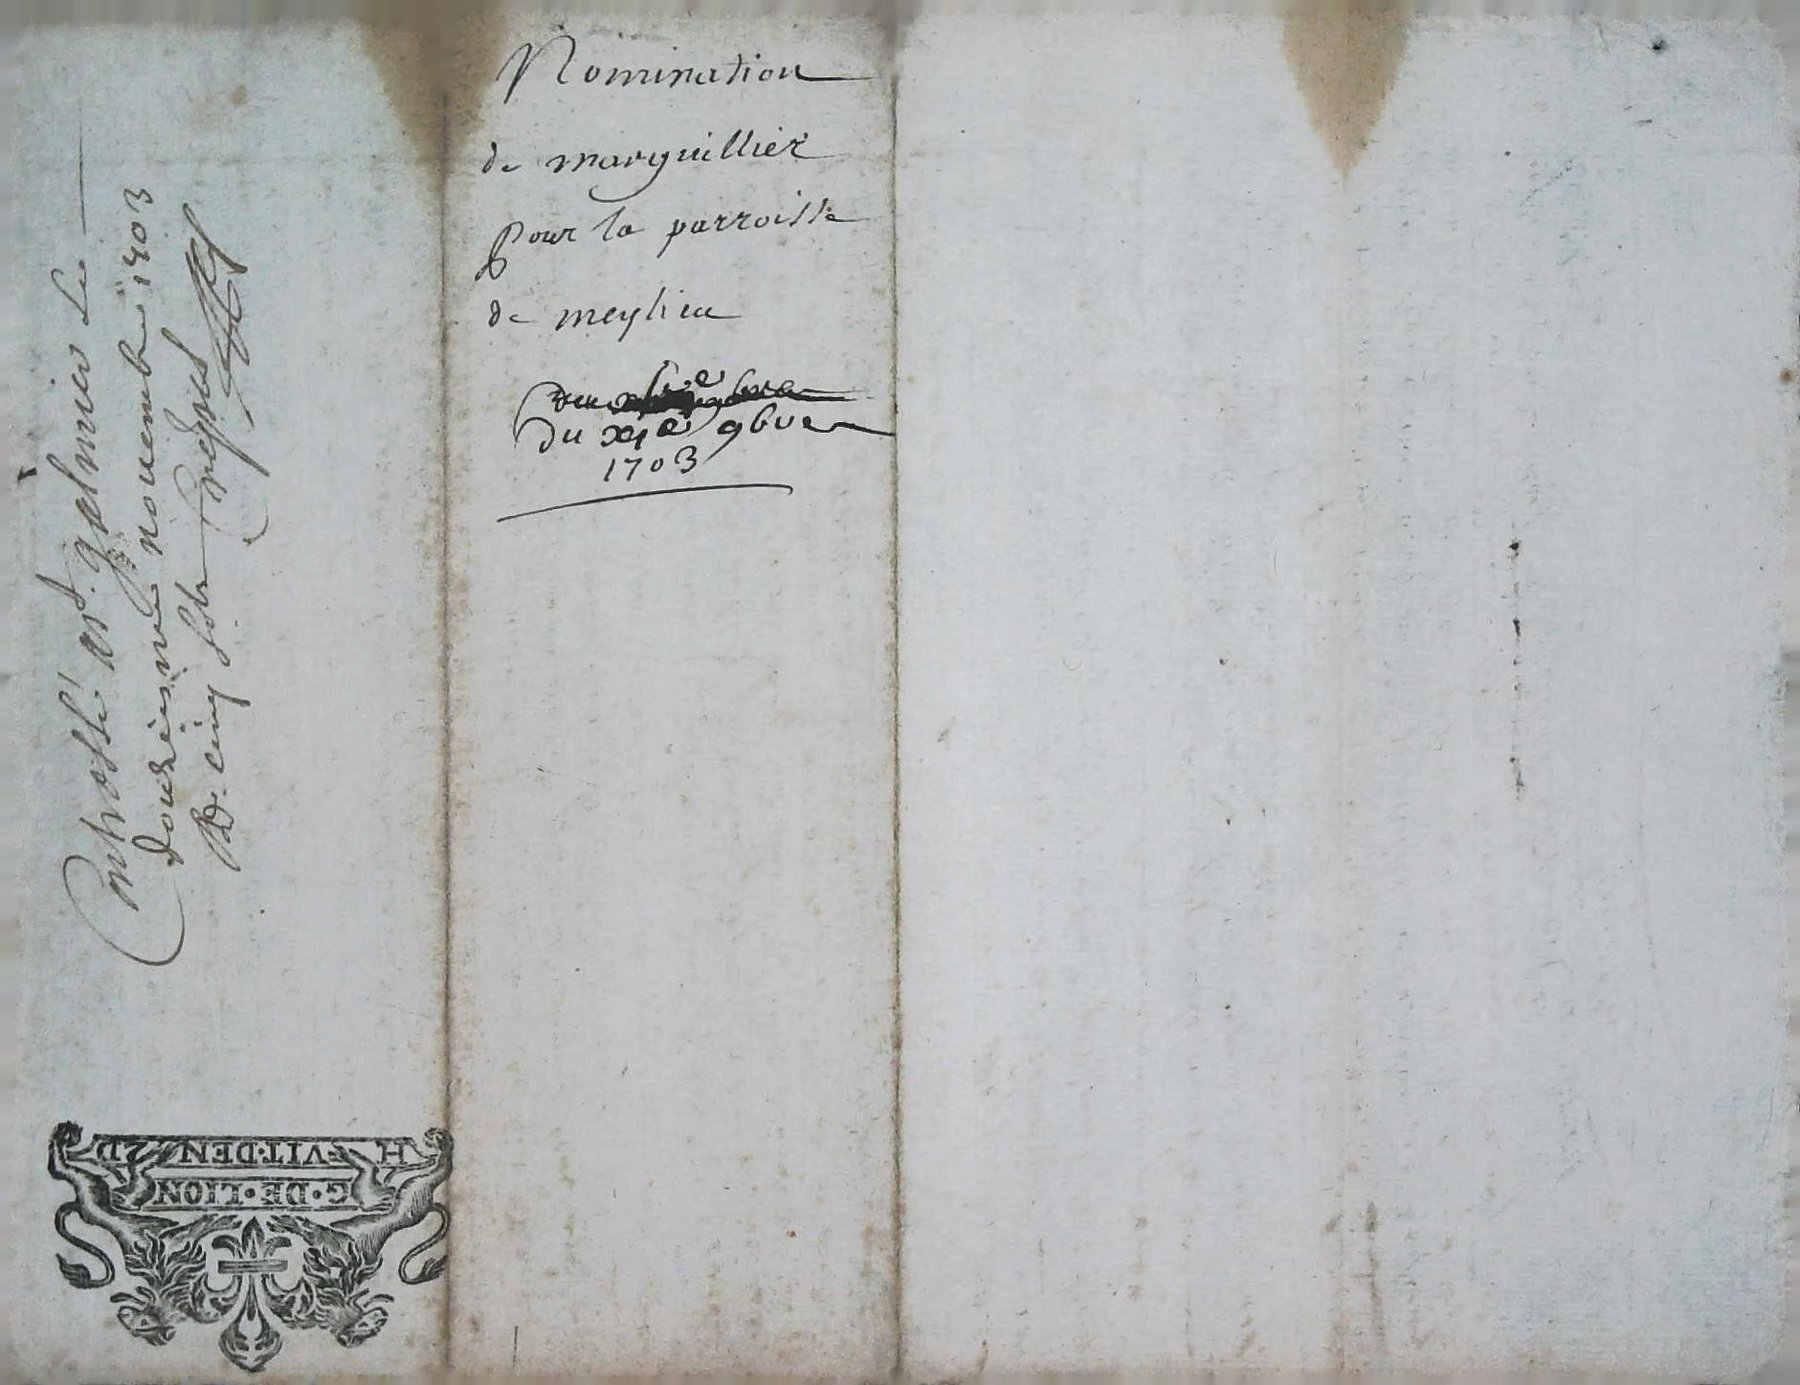 Nomination
de marguillier
pour la parroisse
de meylieu
du 9bre
du xje 9bre
1703
Controllé a st. galmier le
douzieme novembre 1703
R. cinq solz
G·DE·LION
H VIT·DEN 2D